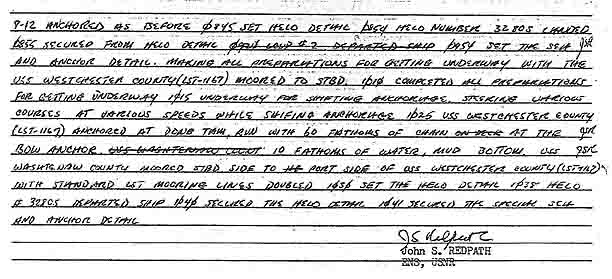 8-12 ANCHORED AS BEFORE 0845 SET HELO DETAIL 0854 HELO NUMBER 32805 LANDED
0855 SECURED FROM HELO DETAIL DEPARTED SHIP 0954 SET THE SEA JSR
AND ANCHOR DETAIL. MAKING ALL PREPARATIONS FOR GETTING UNDERWAY WITH THE
USS WESTCHESTER COUNTY (LST-1167) MOORED TO STBD. 1010 COMPLETED ALL PREPARATIONS
FOR GETTING UNDERWAY 1015 UNDERWAY FOR SHIFTING ANCHORAGE. STEERING VARIOUS
COURSES AT VARIOUS SPEEDS WHILE SHIFING ANCHORAGE 1025 USS WESTCHESTER COUNTY
(LST-1167) ANCHORED AT DONG TAM, RVN WITH 60 FATHOMS OF CHAIN AT THE JSR
BOW ANCHOR USS WASHTENAW COUNTY 10 FATHOMS OF WATER, MUD BOTTOM. USS JSR
WASHTENAW COUNTY MOORED STBD SIDE TO PORT SIDE OF USS WESTCHESTER COUNTY (LST-1167)
WITH STANDARD LST MOORING LINES DOUBLED 1030 SET THE HELO DETAIL 1038 HELO
# 32805 DEPARTED SHIP 1040 SECURED THE HELO DETAIL 1041 SECURED THE SPECIAL SEA
AND ANCHOR DETAIL
JS Redpath
John S. REDPATH
ENS, USNR